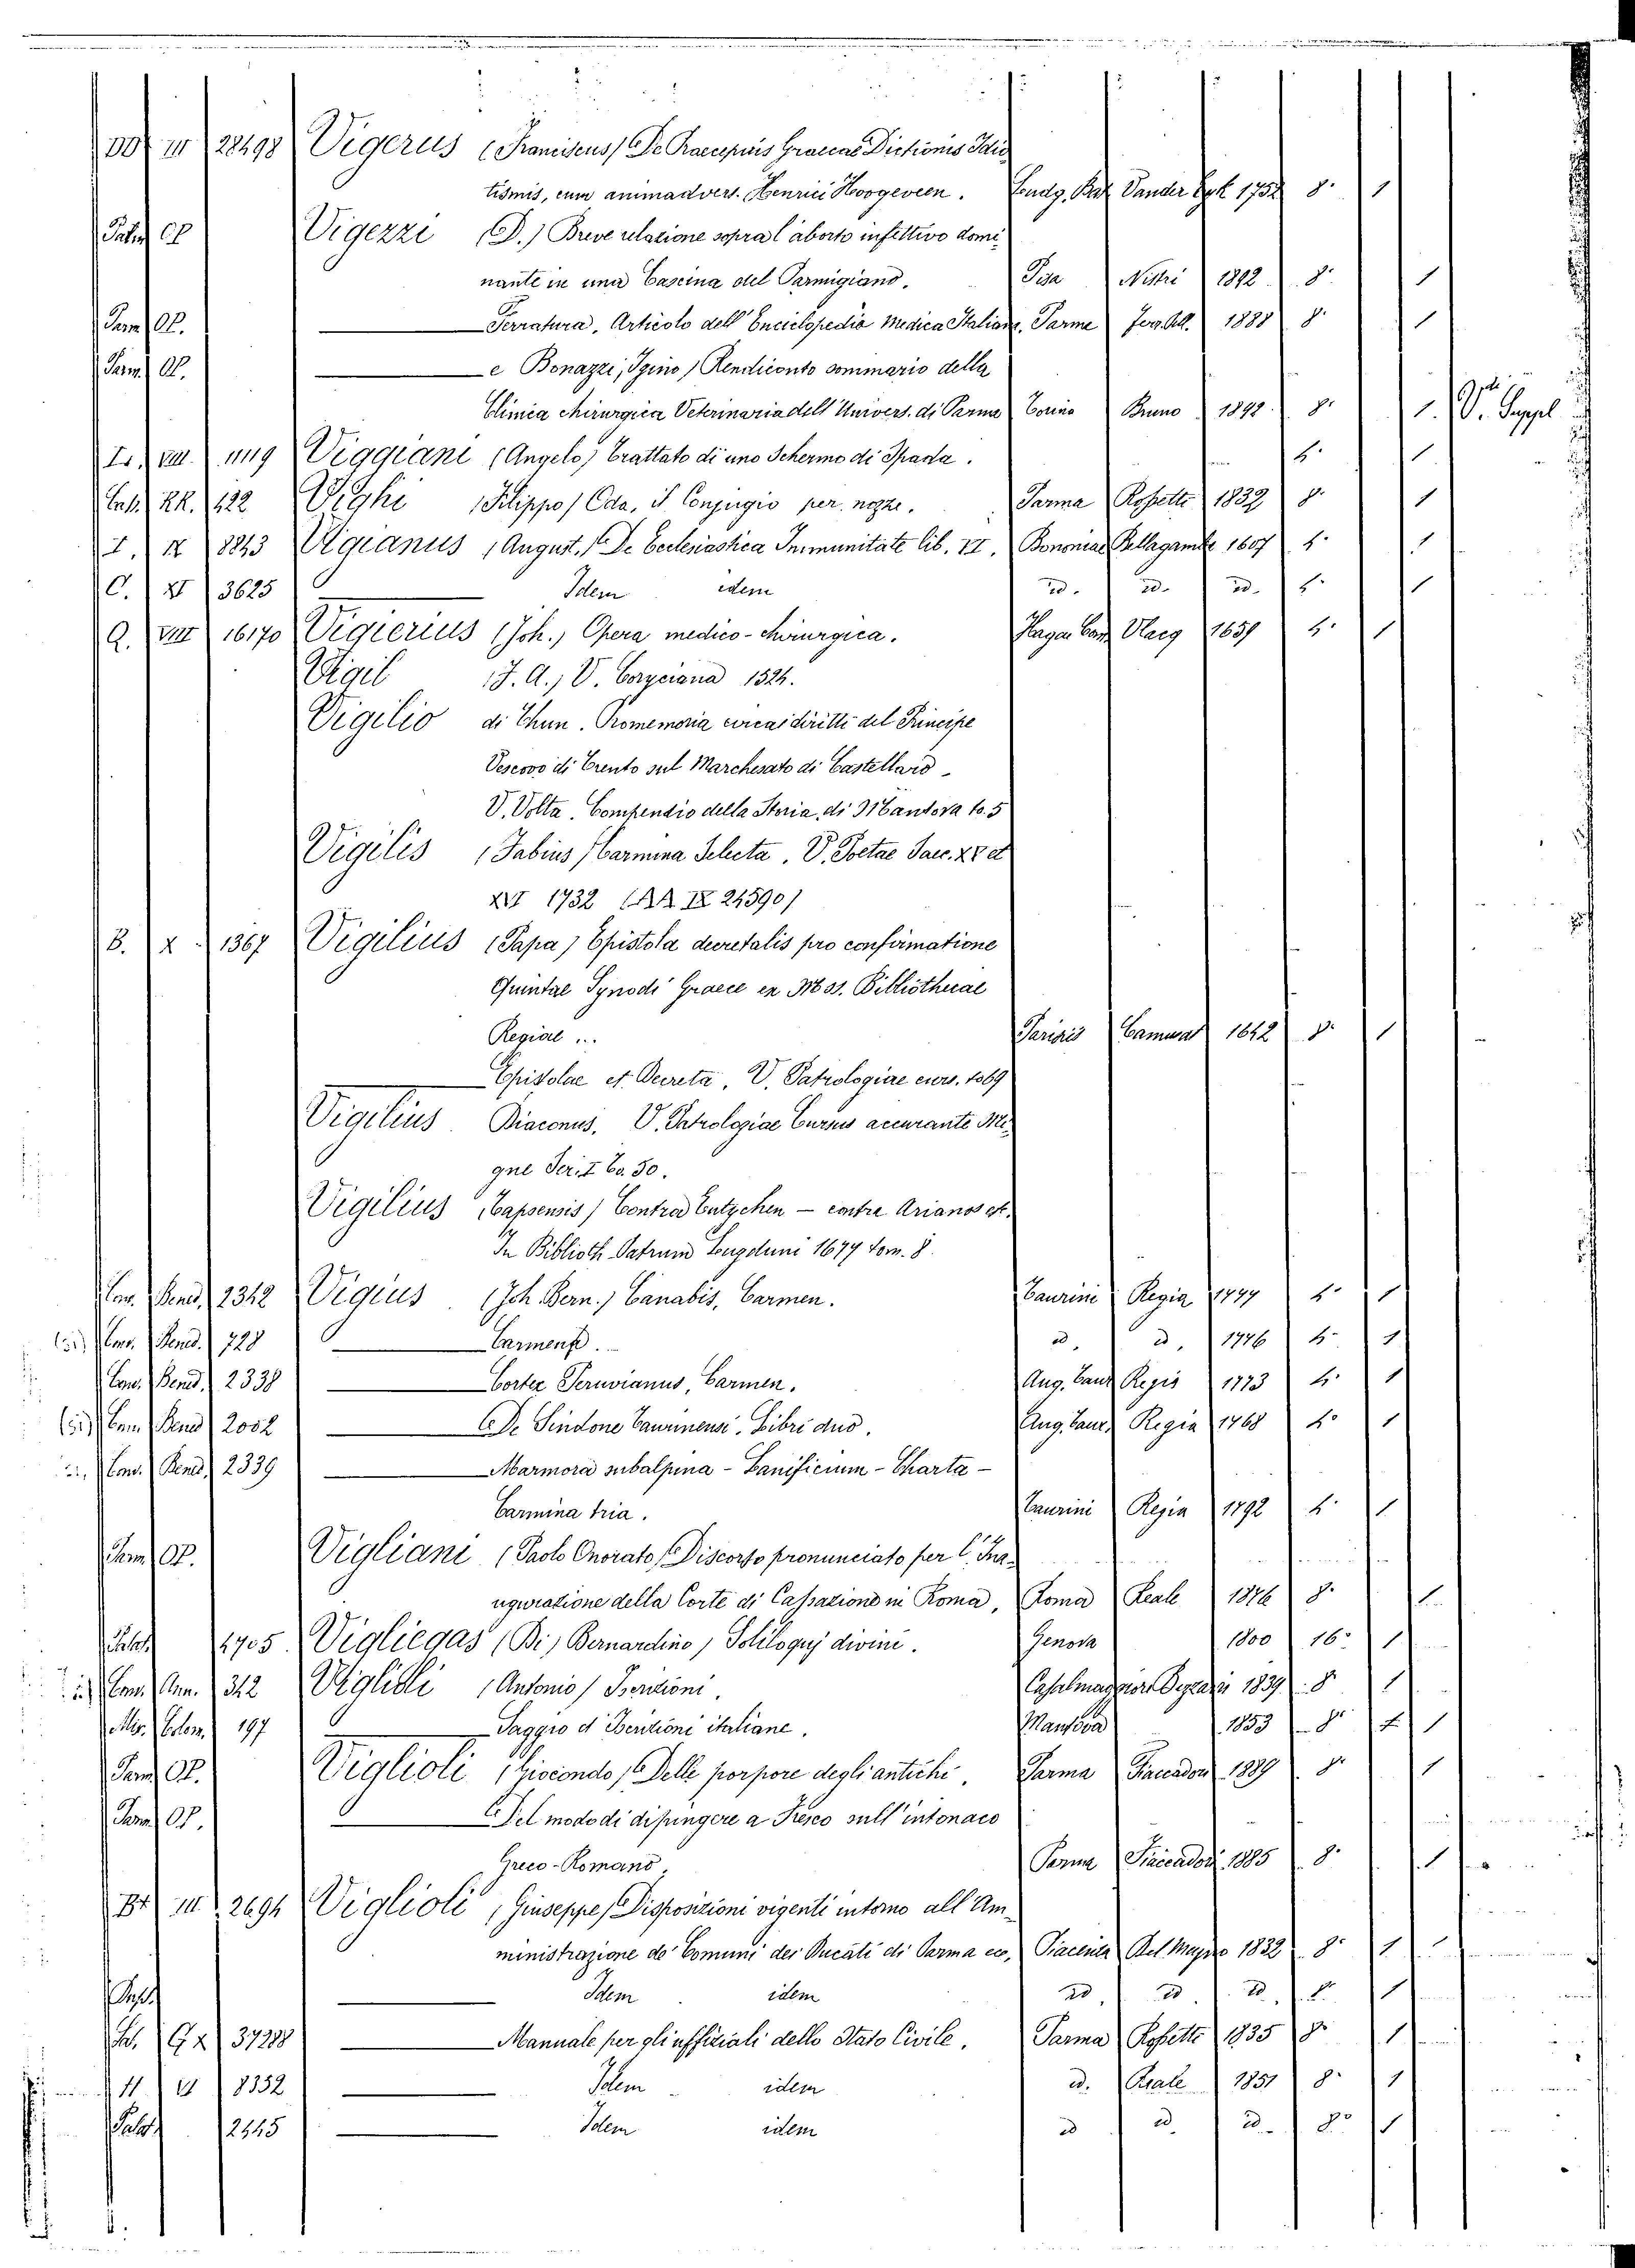 DD III 28498 Vigerus (Franciscus) De Praecipuis Graecae Dictionis Idio
tismis, cum animadvers. Henrici Hoogeveen. Lendg. Bat. Vander Eyk 1752 8. 1
Palat CP Vigezzi (D.) Breve relazione sopra l'aborto infettivo domi
nante in una Cascina del Parmigiano. Pisa Nistri 1892 8. 1
Parm CP. Ferratura, Articolo dell' Enciclopedia Medica Italiana. Parma Ferr. 1888 8. 1
Parm CP. e Bonazzi, Igino) Rendiconto sommario della
Clinica chirurgica Veterinaria dell' Univers. di Parma Torino Bruno 1892 8. 1. V. Suppl
VIII. 11119 Viggiani (Angelo) Trattato di uno Schermo di Spada. 4. 1
RR. 122 Vighi (Filippo) Oda, il Conjugio per nozze. Parma Rossetti 1832 8. 1
I. IX 8843 Vigianus (August.) De Ecclesiastica Immunitate lib. II. Bononiae Bellagamba 1607 4. 1
C. XI 3625 Idem idem id. id. id. 4. 1
Q. VIII 16170 Vigierius (Joh.) Opera medico-chirurgica. Hagae Com. Vlacq 1659 4. 1
Vigil (J. A.) V. Coryciana 1524.
Vigilio di Thun. Promemoria circa i diritti del Principe
Vescovo di Trento sul Marchesato di Castellaro
V. Volta. Compendio della Storia di Mantova to. 5
Vigilis (Fabius) Carmina Selecta. V. Poetae Saec. XV et
XVI 1732 (AA IX 24590)
B. X 1367 Vigilius (Papa) Epistola decretalis pro confirmatione
Quintae Synodi Graece ex Mss. Bibliothecae
Regiae ... Parisiis Camusat 1642 8. 1
Epistolae et Decreta, V. Patrologiae curs. to 69
Vigilius. Diaconus. V. Patrologiae Cursus accurante Mi
gne Ser. I to. 50.
Vigilius (Tapsensis) Contra Eutychen — contra Arianos et.
In Biblioth. Patrum Lugduni 1677 tom. 8.
Com. Bend. 2342 Vigius. (Joh. Bern.) Canabis, Carmen. Taurini Regia 1777 4. 1
Com. Bend. 728 Carmena. id. id. 1776 4. 1
Com. Bend. 2338 Cortex Peruvianus, Carmen. Aug. Taur. Regis 1773 4. 1
Com. Bend. 2002 De Sindone Taurinensi. Libri duo. Aug. Taur. Regia 1768 4. 1
Com. Bend. 2339 Marmora subalpina - Lanificium - Charta -
Carmina tria. Taurini Regia 1792 4. 1
Parm CP. Vigliani (Paolo Onorato) Discorso pronunciato per l' Ina
ugurazione della Corte di Cassazione in Roma, Roma Reale 1876 8. 1
Palat 1705 Vigliegas (Di) Bernardino) Soliloquj divini. Genova 1800 16. 1
Com. Ann. 342 Viglioli (Antonio) Iscrizioni. Casalmaggiore 1839 8. 1
Mis. Colom. 197 Saggio d' Iscrizioni italiane. Mantova 1853 8. 1
Parm CP. Viglioli (Giocondo) Delle porpore degli antichi. Parma Fiaccadori 1889 8. 1
Parm CP. Del modo di dipingere a Fresco sull'intonaco
Greco-Romano. Parma Fiaccadori 1885 8. 1
III. 2694 Viglioli (Giuseppe) Disposizioni vigenti intorno all' Am
ministrazione de' Comuni dei Ducati di Parma ec. Piacenza Del Majno 1832 8. 1
Idem idem id. id. id. 8. 1
37288 Manuale per gli uffiziali dello Stato Civile. Parma Rossetti 1835 8. 1
8352 Idem idem id. Reale 1851 8. 1
Palat 12445 Idem idem id id. id. 8. 1